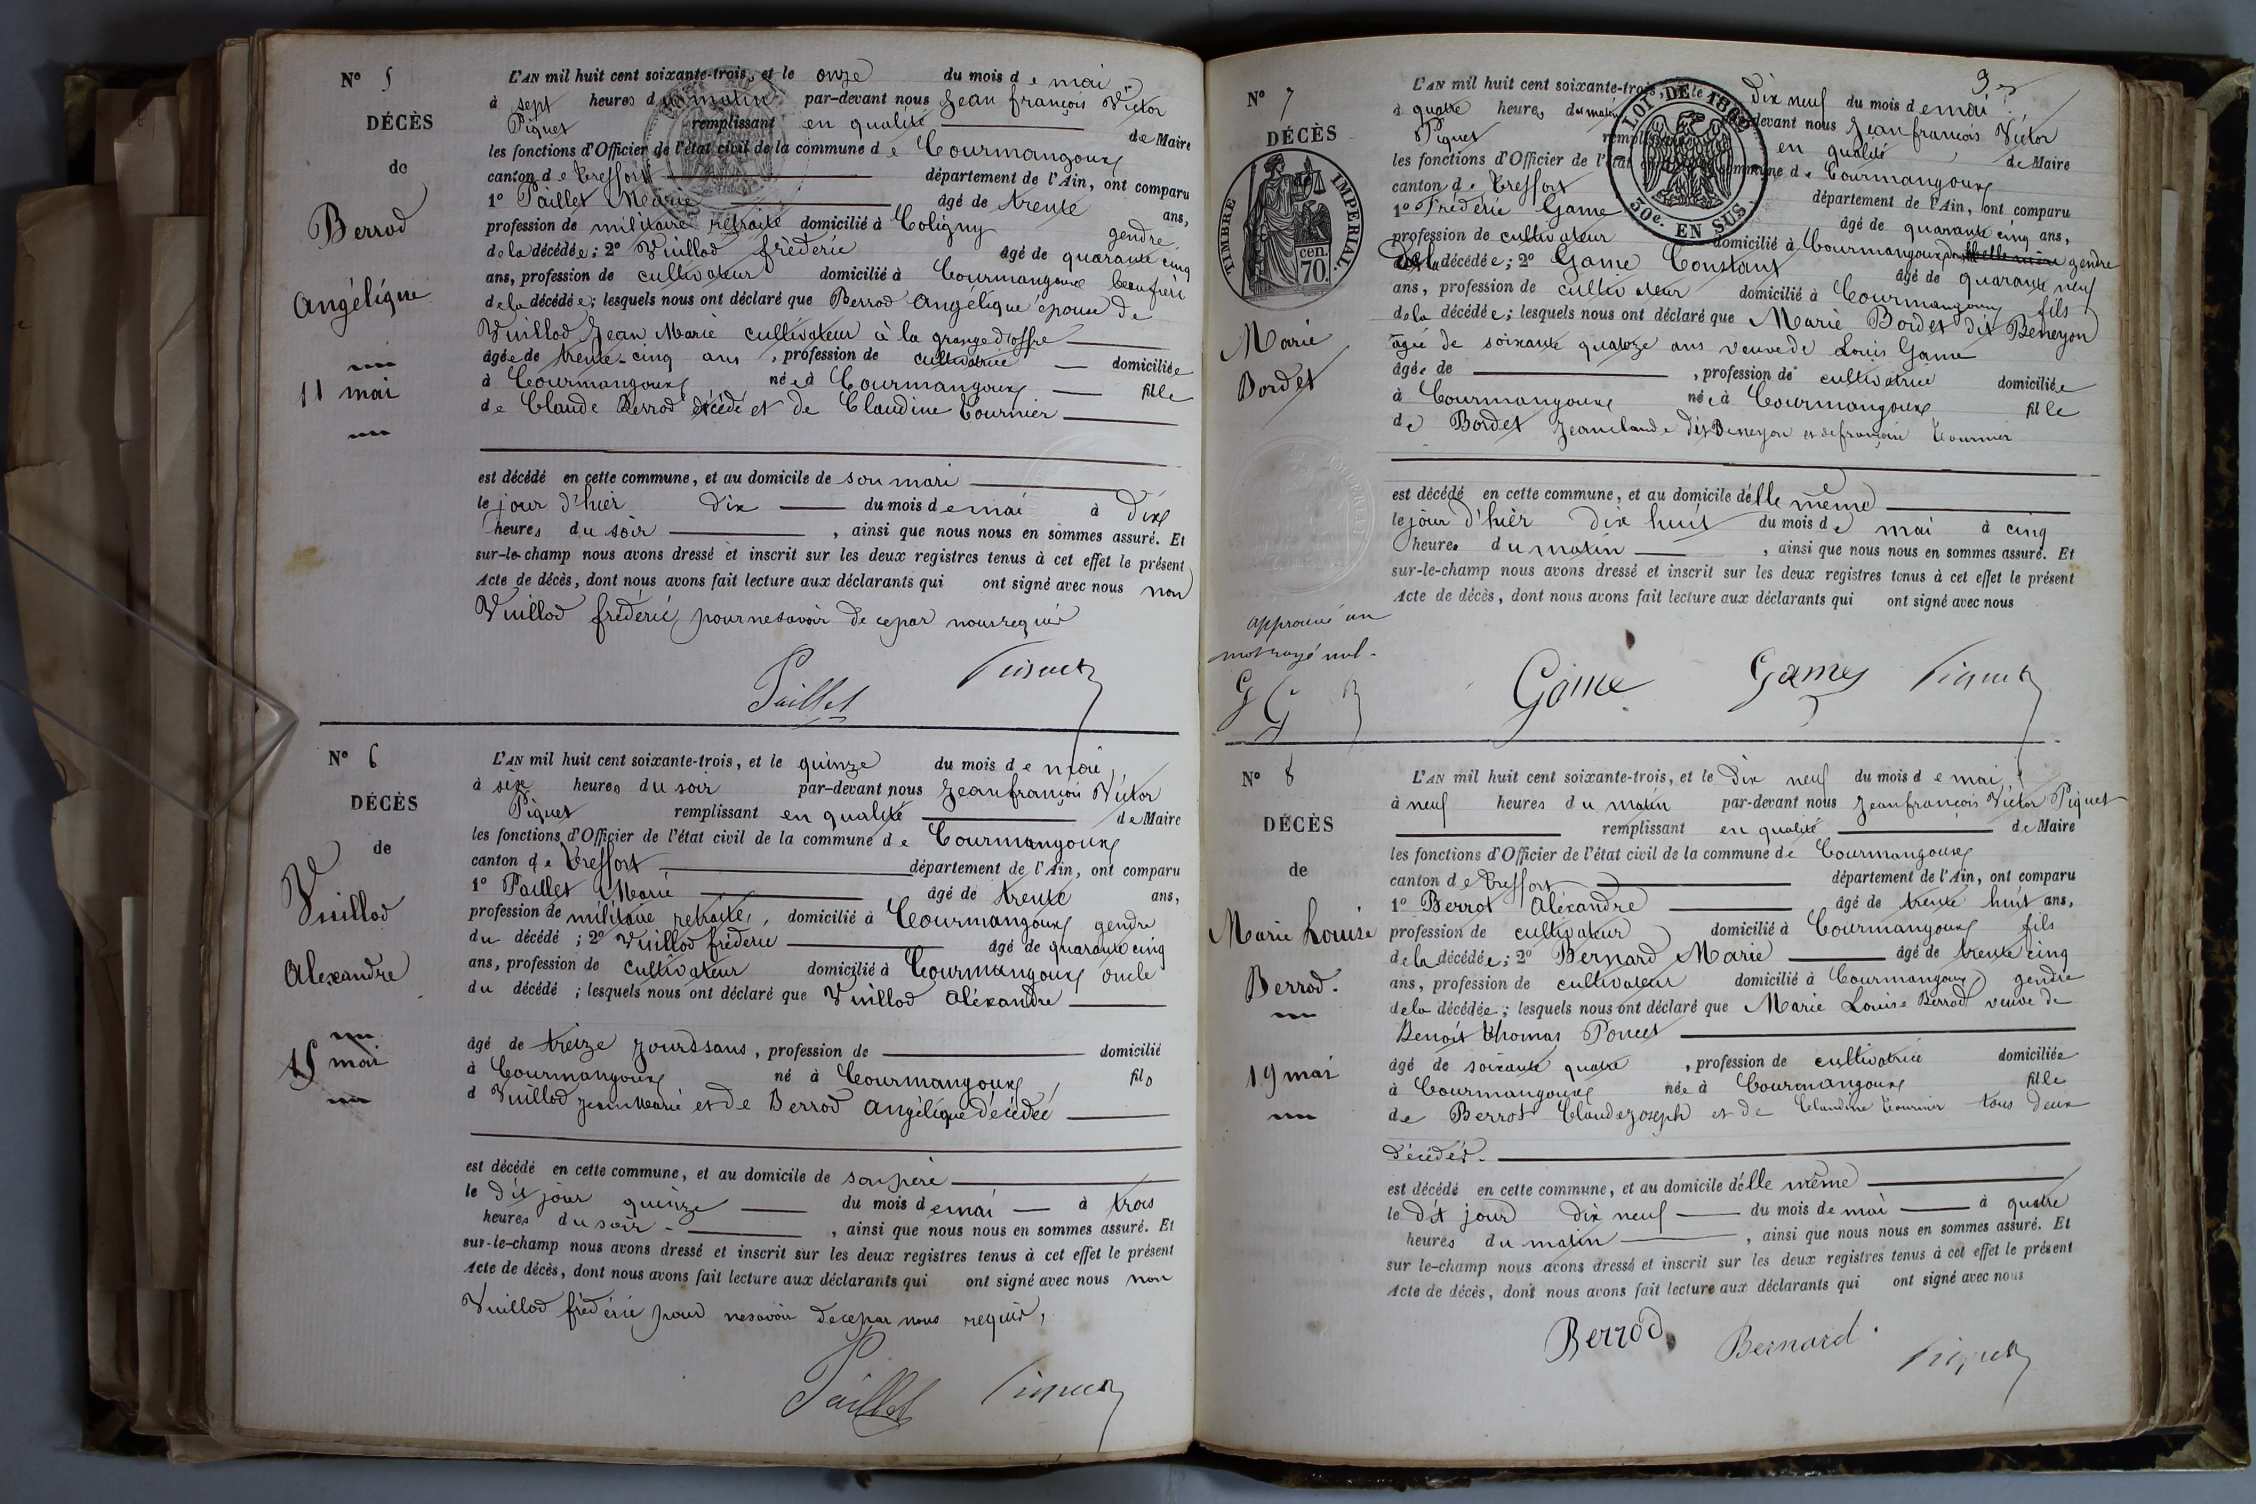 N° 5
DÉCÈS
de
Berrod
Angélique
11 mai
L'AN mil huit cent soixante-trois, et le onze du mois de mai
à sept heures du matin par-devant nous Jean françois Victor
Piquet remplissant en qualité de Maire
les fonctions d'Officier de l'état civil de la commune de Courmangoux
canton de Treffort département de l'Ain, ont comparu
1° Paillet Marie âgé de trente ans,
profession de militaire retraité domicilié à Coligny gendre
de la décédée; 2° Vuillod frédéric âgé de quarante cinq
ans, profession de cultivateur domicilié à Courmangoux beaufrère
de la décédée; lesquels nous ont déclaré que Berrod Angélique épouse de
Vuillod Jean Marie cultivateur à la grange d'offre
âgée de trente-cinq ans, profession de cultivatrice domiciliée
à Courmangoux née à Courmangoux fille
de Claude Berrod décédé et de Claudine Tournier
est décédé en cette commune, et au domicile de son mari
le jour d'hier dix du mois de mai à dix
heures du soir, ainsi que nous nous en sommes assuré. Et
sur-le-champ nous avons dressé et inscrit sur les deux registres tenus à cet effet le présent
Acte de décès, dont nous avons fait lecture aux déclarants qui ont signé avec nous non
Vuillod frédéric pour ne savoir de ce par nous requis
Paillet Piquet
N° 6
DÉCÈS
de
Vuillod
Alexandre
15 mai
L'AN mil huit cent soixante-trois, et le quinze du mois de mai
à six heures du soir par-devant nous Jean françois Victor
Piquet remplissant en qualité de Maire
les fonctions d'Officier de l'état civil de la commune de Courmangoux
canton de Treffort département de l'Ain, ont comparu
1° Paillet Marie âgé de trente ans,
profession de militaire retraité, domicilié à Courmangoux gendre
du décédé; 2° Vuillod frédéric âgé de quarante cinq
ans, profession de cultivateur domicilié à Courmangoux oncle
du décédé; lesquels nous ont déclaré que Vuillod Alexandre
âgé de treize jours sans, profession de domicilié
à Courmangoux né à Courmangoux, fils
d Vuillod Jean Marie et de Berrod Angélique décédée
est décédé en cette commune, et au domicile de son père
le dit jour quinze du mois de mai à trois
heures du soir, ainsi que nous nous en sommes assuré. Et
sur-le-champ nous avons dressé et inscrit sur les deux registres tenus à cet effet le présent
Acte de décès, dont nous avons fait lecture aux déclarants qui ont signé avec nous non
Vuillod frédéric pour ne savoir de ce par nous requis,
Paillet Piquet
N° 7
DÉCÈS
TIMBRE IMPERIAL.
70 cen.
Marie
Bordet
approuvé un
mot rayé nul.
G G
LOI DE 1862
50c. EN SUS
L'AN mil huit cent soixante-trois, et le dix neuf du mois de mai
à quatre heures du matin par-devant nous Jean françois Victor
Piquet remplissant en qualité de Maire
les fonctions d'Officier de l'état civil de la commune de Courmangoux
canton de Treffort département de l'Ain, ont comparu
1° Frédéric Game âgé de quarante cinq ans,
profession de cultivateur domicilié à Courmangoux gendre
de la décédée; 2° Game Constant âgé de quarante neuf
ans, profession de cultivateur domicilié à Courmangoux fils
de la décédée; lesquels nous ont déclaré que Marie Bordet dit Beneyon
âgée de soixante quatorze ans veuve de Louis Game
âgée de, profession de cultivatrice domiciliée
à Courmangoux née à Courmangoux fille
de Bordet Jean claude dit Beneyon et de françoise Tournier
est décédé en cette commune, et au domicile d'elle même
le jour d'hier dix huit du mois de mai à cinq
heures du matin, ainsi que nous nous en sommes assuré. Et
sur-le-champ nous avons dressé et inscrit sur les deux registres tenus à cet effet le présent
Acte de décès, dont nous avons fait lecture aux déclarants qui ont signé avec nous
Game Games Piquet
N° 8
DÉCÈS
de
Marie Louise
Berrod.
19 mai
L'AN mil huit cent soixante-trois, et le dix neuf du mois de mai
à neuf heures du matin par-devant nous Jean françois Victor Piquet
remplissant en qualité de Maire
les fonctions d'Officier de l'état civil de la commune de Courmangoux
canton de Treffort département de l'Ain, ont comparu
1° Berrot Alexandre âgé de trente huit ans,
profession de cultivateur domicilié à Courmangoux fils
de la décédée; 2° Bernard Marie âgé de trente cinq
ans, profession de cultivateur domicilié à Courmangoux gendre
de la décédée; lesquels nous ont déclaré que Marie Louise Berrod veuve de
Benoit Thomas Poncet
âgé de soixante quatre, profession de cultivatrice domiciliée
à Courmangoux née à Courmangoux fille
de Berrot Claude joseph et de Claudine Tournier tous deux
décédés.
est décédé en cette commune, et au domicile d'elle même
le dit jour dix neuf du mois de mai à quatre
heures du matin, ainsi que nous nous en sommes assuré. Et
sur le-champ nous avons dressé et inscrit sur les deux registres tenus à cet effet le présent
Acte de décès, dont nous avons fait lecture aux déclarants qui ont signé avec nous
Berrod. Bernard. Piquet